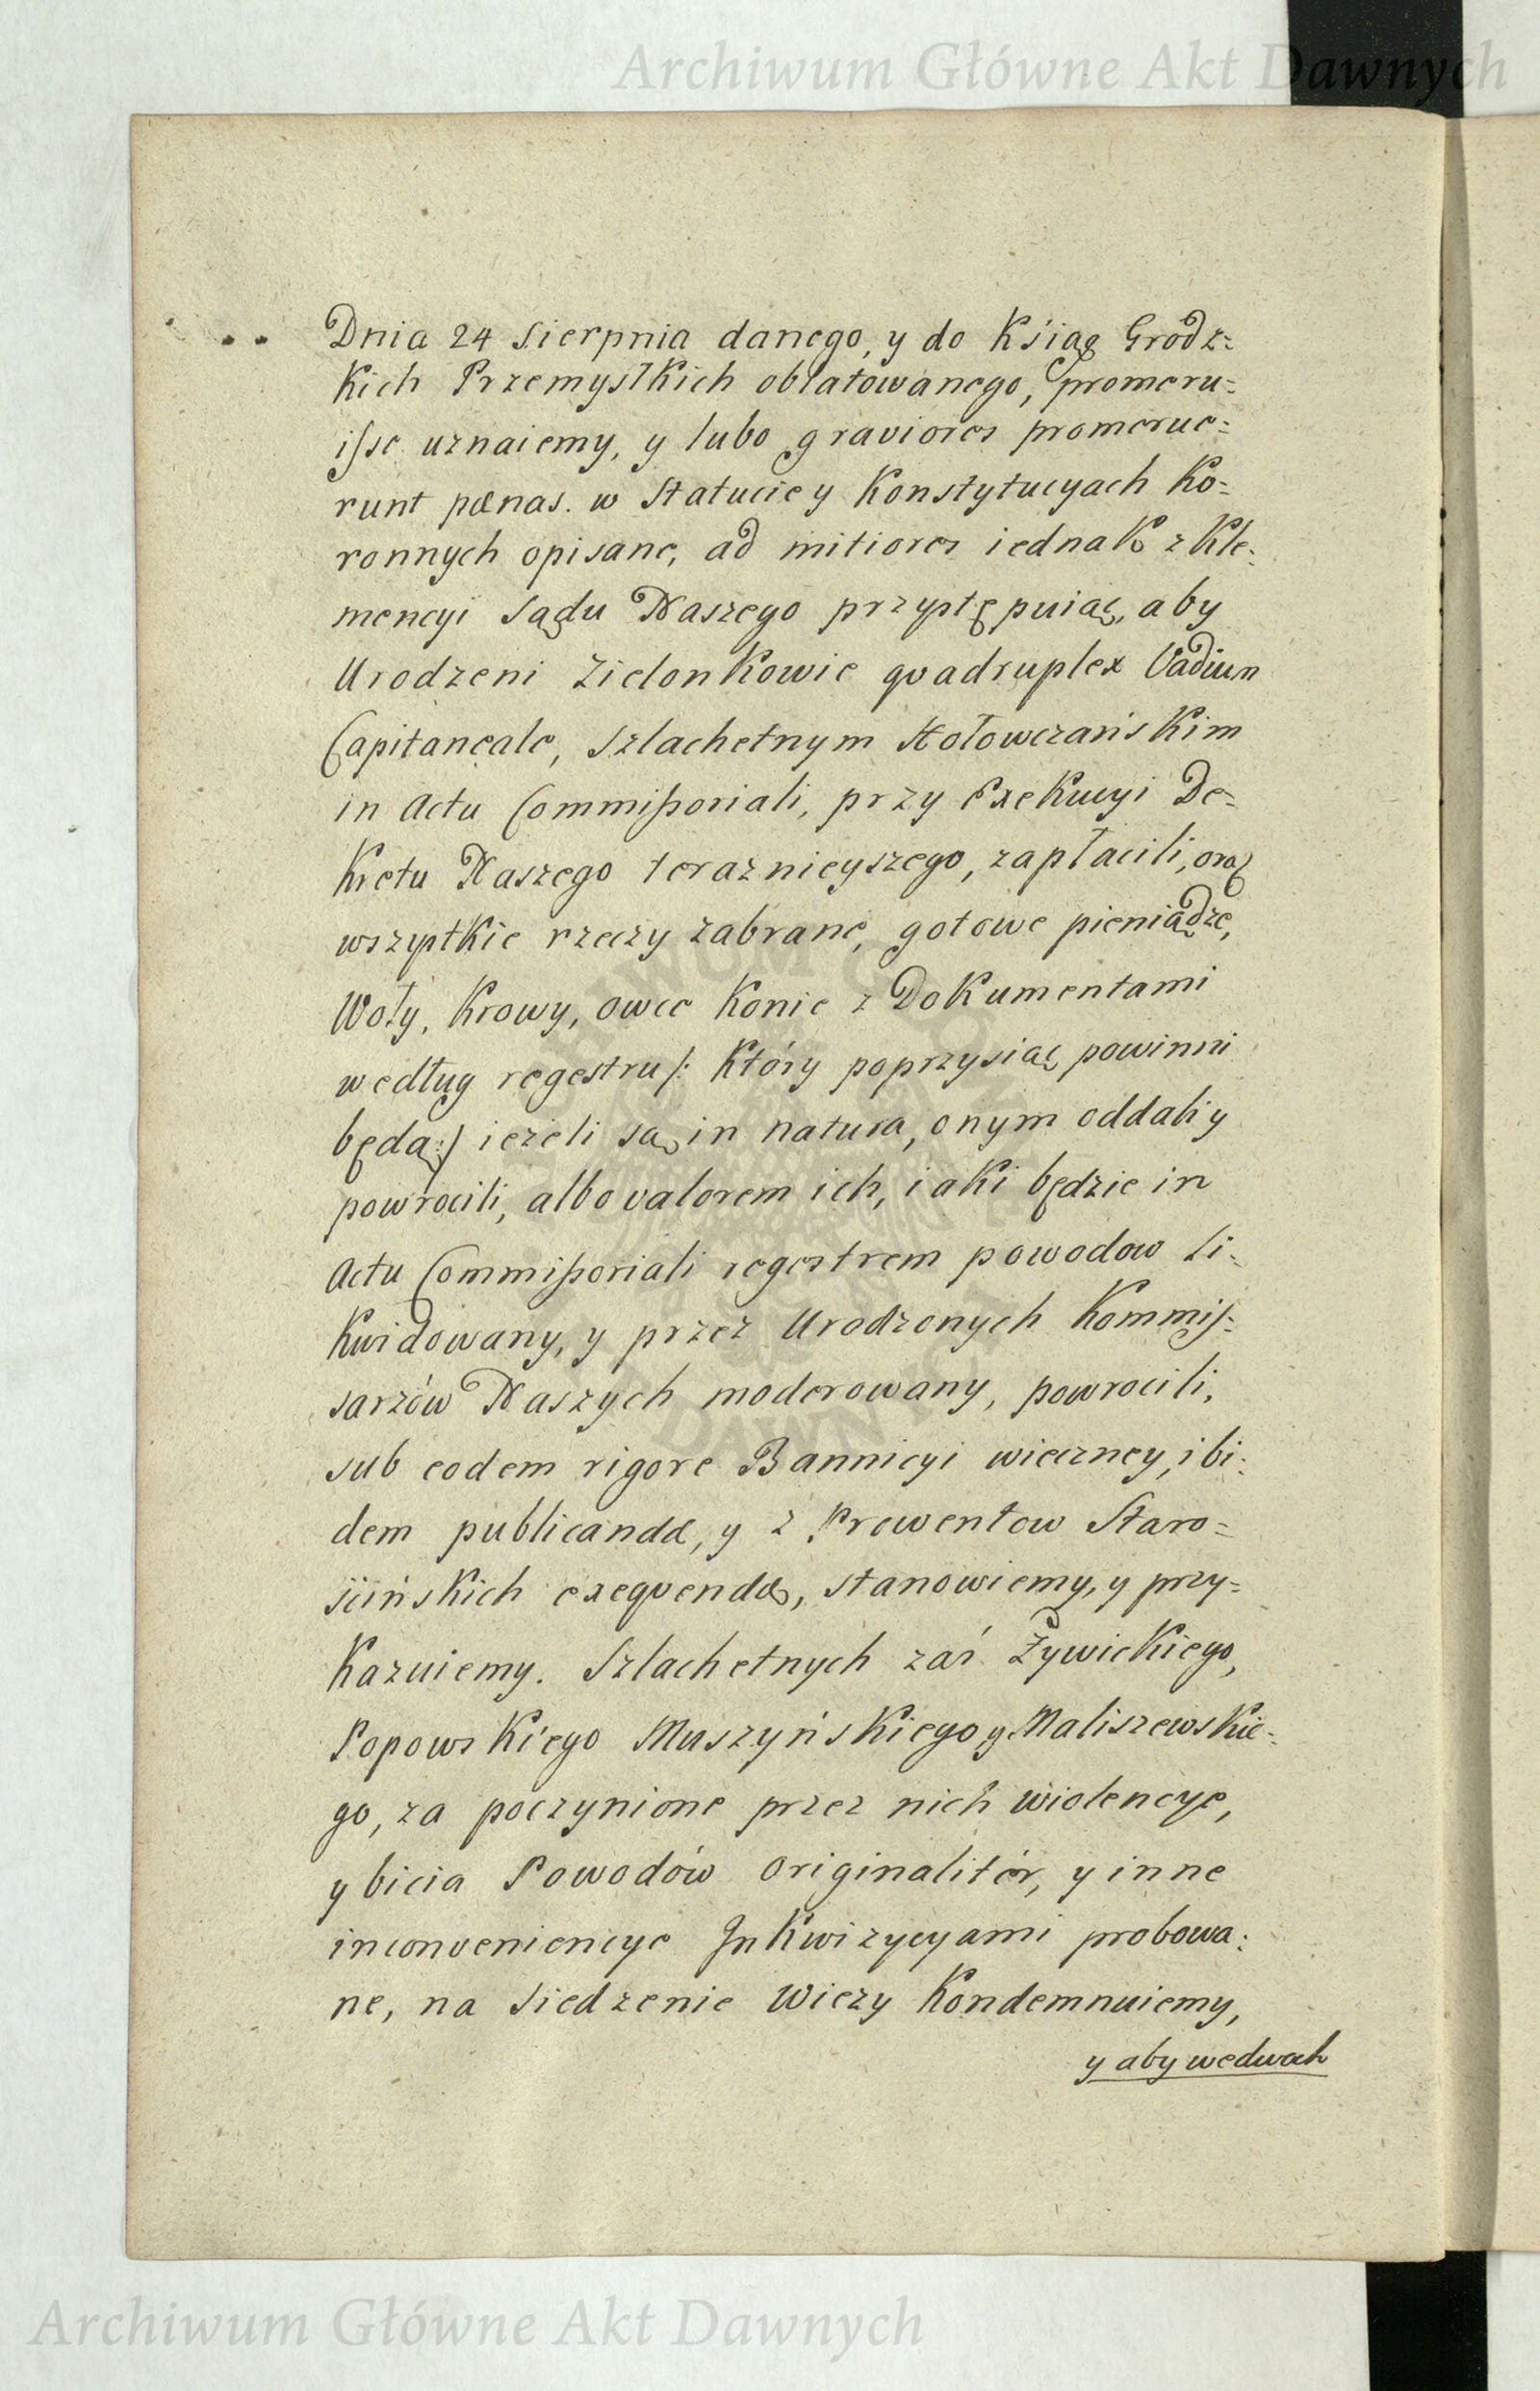 Archiwum Główne Akt Dawnych
Dnia 24 Sierpnia danego, y do Ksiąg Grodz=
kich Przemyslkich oblatowanego, promeru=
isse uznaiemy, y lubo graviores promerue=
runt pænas. w Statucie y Konstytucyach Ko=
ronnych opisane, ad mitiores iednak z Kle=
mencyi Sądu Naszego przystępuiąc, aby
Urodzeni Zielonkowie quadruplex Vadium
Capitaneale, Szlachetnym Hołowczańskim
in Actu Commissoriali, przy Exekucyi De=
kretu Naszego teraznieyszego, zapłacili, oraz
wszystkie rzeczy zabrane, gotowe pieniądze,
Woły, Krowy, owce Konie z Dokumentami
według regestru /: Który poprzysiąc powinni
będą :/ ieżeli są in natura, onym oddali y
powrocili, albo valorem ich, iaki będzie in
Actu Commissoriali regestrem powodow li=
kwidowany, y przez Urodzonych Kommis=
sarzów Naszych moderowany, powrocili,
sub eodem rigore Bannicyi wieczney, ibi=
dem publicandæ, y z Prowentow Staro=
siińskich exequendæ, stanowiemy, y przy=
kazuiemy. Szlachetnych zaś Żywickiego,
Popowskiego Muszyńskiego y Maliszewskie=
go, za poczynione przez nich wiolencye,
y bicia Powodów originalitér, y inne
inconveniencye Inkwizycyami probowa=
ne, na Siedzenie Wiezy Kondemnuiemy,
y aby wedwoch
Archiwum Główne Akt Dawnych